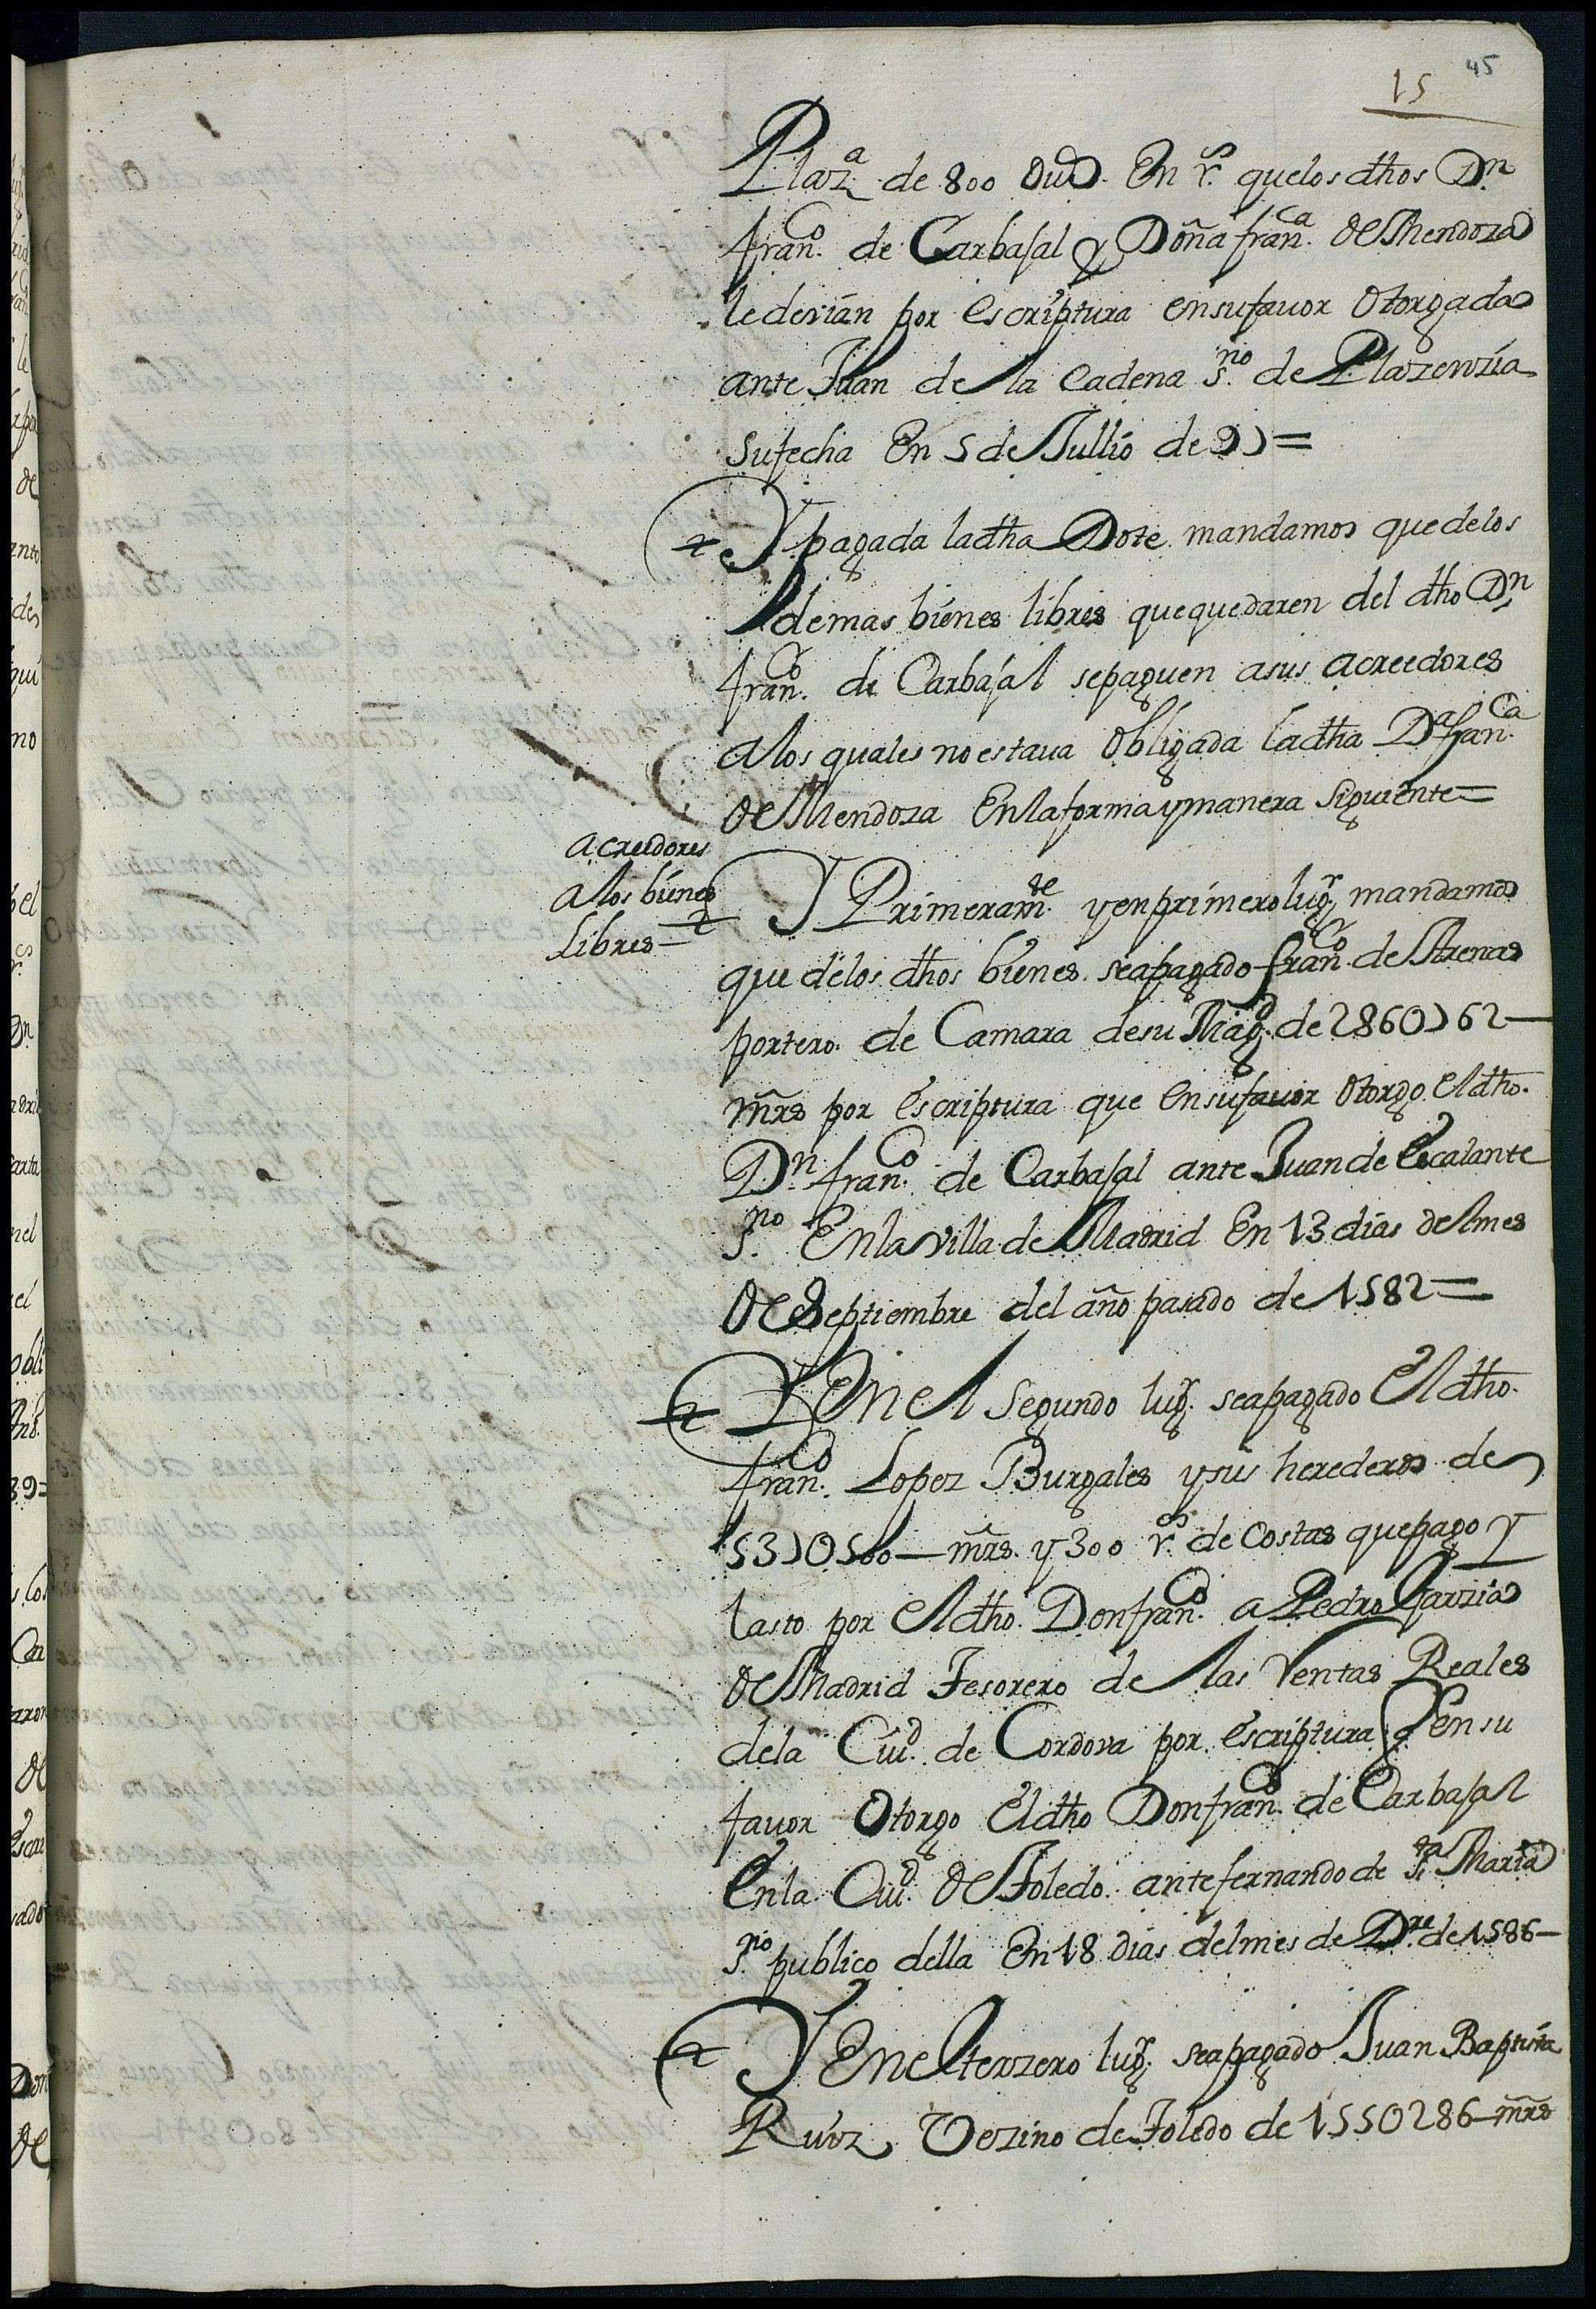 45
15
Plaz.ª de 800 Dud. En r.s quelos dhos D.n
fran.co de Carbajal y Doña fran.ca de Mendoza
le devian por escriptura ensufauor otorgada
ante Juan de la Cadena s.no de Plazenzia
sufecha En 5 de Jullio de 97=
Y pagada ladha Dote mandamos quedelos
demas bienes libres quequedaren del dho D.n
fran.co de Carbajal sepaguen asus acreedores
alos quales no estaua obligada ladha D.a fran.ca
de Mendoza Enlaforma ymanera siguiente=
acreedores
alos bienes
libres=
Y Primeram.te yenprimero lug.r mandamos
que delos dhos bienes seapagado fran.co de Arenas
portero de Camara desu Mag.d de 286U762
mrs por escriptura que ensufauor otorgo eldho
D.n fran.co de Carbajal ante Juan de Escalante
s.no Enla villa de Madrid En 13 dias delmes
de Septiembre del año pasado de 1582=
Y En el segundo lug.r seapagado Eldho
fran.co Lopez Burgales ysus herederos de
537U500 mrs. y 300 r.s de costas quepago y
lasto por eldho Donfran.co a Pedro Garzia
de Madrid Tesorero de las Ventas Reales
dela Ciu.d de Cordova por escriptura q ensu
favor otorgo eldho Donfran.co de Carbajal
Enla Ciu.d de Toledo ante fernando de S.ta Maria
s.no publico della En 18 dias delmes de D.re de 1586
Y En el terzero lug.r seapagado Juan Baptista
Ruiz Vezino de Toledo de 155U286 mrs